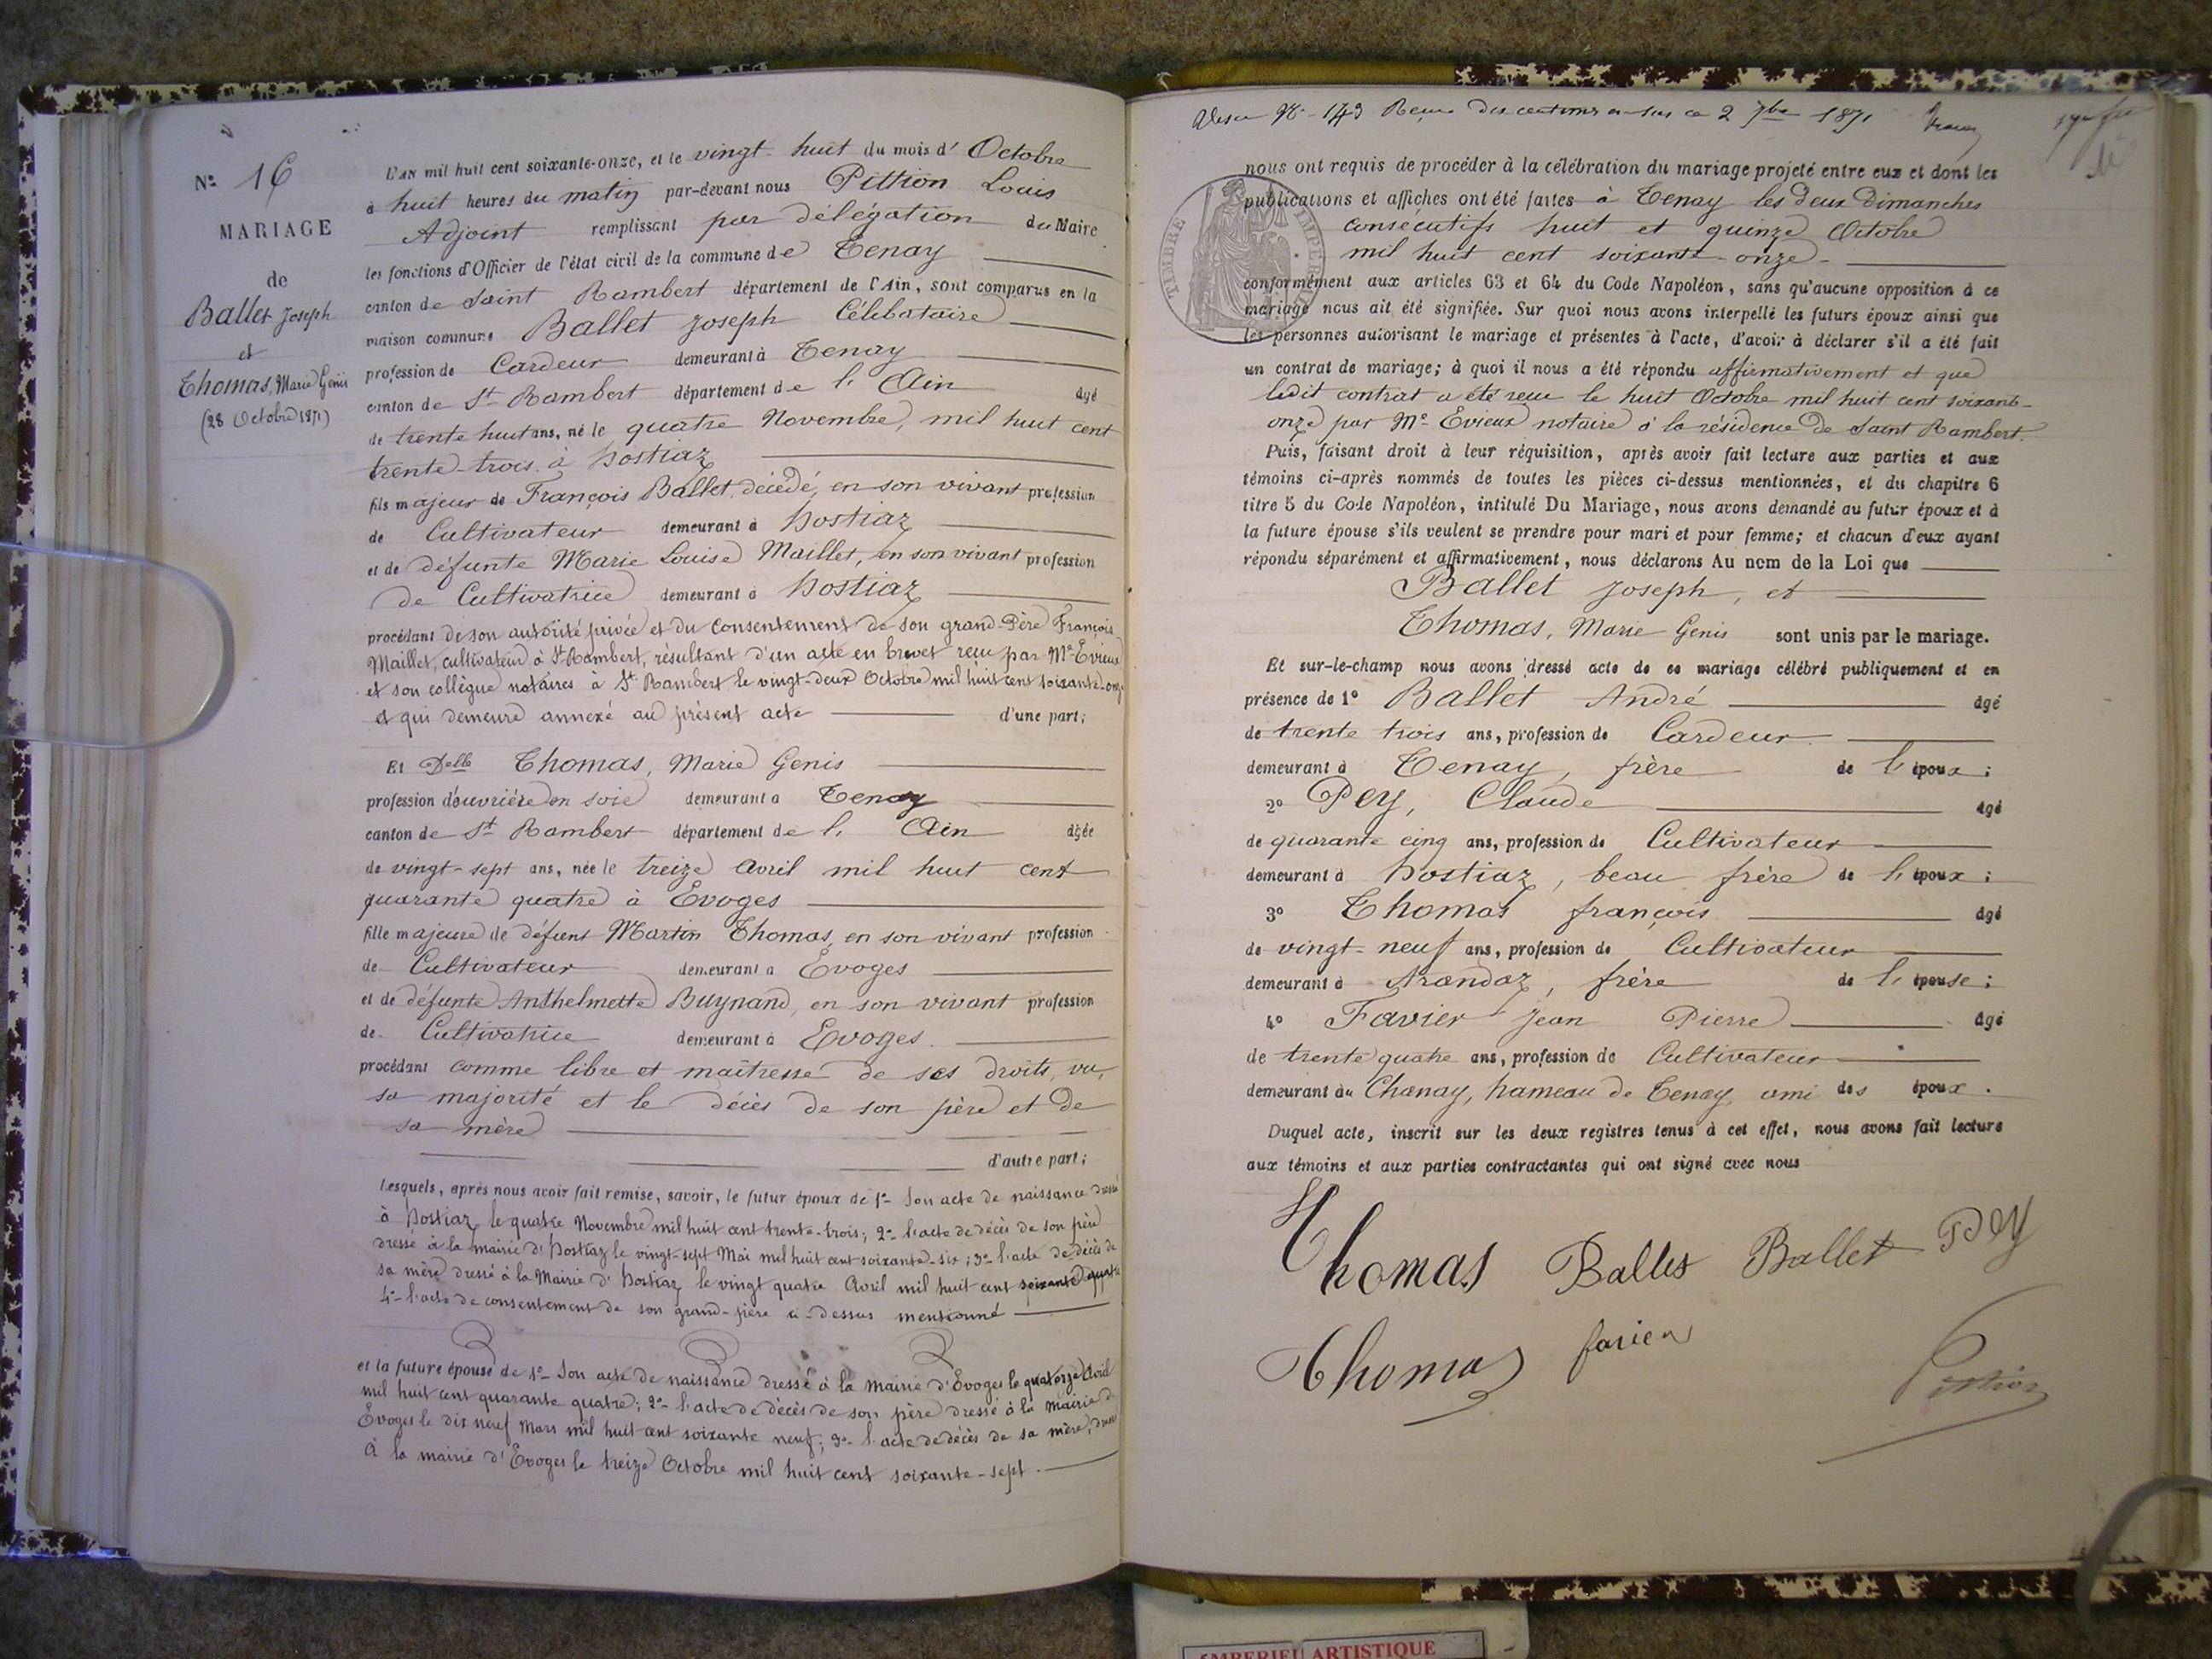 N° 16
MARIAGE
de
Ballet Joseph
et
Thomas, Marie Genis
(28 Octobre 1871)
L'an mil huit cent soixante-onze, et le vingt-huit du mois d' Octobre
à huit heures du matin par-devant nous Pittion Louis
Adjoint remplissant par délégation du Maire
les fonctions d'Officier de l'état civil de la commune de Tenay
canton de Saint Rambert département de l'Ain, sont comparus en la
maison commune Ballet Joseph Célibataire
profession de Cardeur demeurant à Tenay
canton de St Rambert département de l'Ain âgé
de trente huit ans, né le quatre Novembre, mil huit cent
trente-trois à hostiaz
fils majeur de François Ballet, décédé, en son vivant profession
de Cultivateur demeurant à hostiaz
et de défunte Marie Louise Maillet, en son vivant profession
de Cultivatrice demeurant à hostiaz
procédant de son autorité privée et du consentement de son grand-Père François
Maillet, cultivateur à St Rambert, résultant d'un acte en brevet reçu par Me Evieux
et son collègue notaires à St Rambert le vingt-deux Octobre mil huit cent soixante-onze
et qui demeure annexé au présent acte d'une part;
Et Delle Thomas, Marie Genis
profession d'ouvrière en soie demeurant à Tenay
canton de St Rambert département de l'Ain âgée
de vingt-sept ans, née le treize Avril mil huit cent
quarante quatre à Evoges
fille majeure de défunt Martin Thomas, en son vivant profession
de Cultivateur demeurant à Evoges
et de défunte Anthelmette Buynand, en son vivant profession
de Cultivatrice demeurant à Evoges.
procédant comme libre et maîtresse de ses droits, vu,
sa majorité et le décès de son père et de
sa mère
d'autre part;
Lesquels, après nous avoir fait remise, savoir, le futur époux de 1°- Son acte de naissance dressé
à hostiaz le quatre Novembre mil huit cent trente-trois; 2°- l'acte de décès de son père
dressé à la mairie d'hostiaz le vingt-sept Mai mil huit cent soixante-six; 3°- l'acte de décès de
sa mère dressé à la Mairie d'hostiaz le vingt quatre Avril mil huit cent soixante quatre
4°- l'acte de consentement de son grand-père ci-dessus mentionné
et la future épouse de 1°- Son acte de naissance dressé à la mairie d'Evoges le quatorze Avril
mil huit cent quarante quatre; 2°- l'acte de décès de son père dressé à la mairie d'
Evoges le dix neuf Mars mil huit cent soixante neuf; 3°- l'acte de décès de sa mère, dressé
à la mairie d'Evoges le treize Octobre mil huit cent soixante-sept.
98 - 143 Reçu dix centimes en sus ce 2 7bre 1871
nous ont requis de procéder à la célébration du mariage projeté entre eux et dont les
publications et affiches ont été faites à Tenay les deux Dimanches
consécutifs huit et quinze Octobre
mil huit cent soixante-onze
TIMBRE IMPERIAL
conformément aux articles 63 et 64 du Code Napoléon, sans qu'aucune opposition à ce
mariage nous ait été signifiée. Sur quoi nous avons interpellé les futurs époux ainsi que
les personnes autorisant le mariage et présentes à l'acte, d'avoir à déclarer s'il a été fait
un contrat de mariage; à quoi il nous a été répondu affirmativement et que
ledit contrat a été reçu le huit Octobre mil huit cent soixante-
onze par Me Evieux notaire à la résidence de Saint Rambert.
Puis, faisant droit à leur réquisition, après avoir fait lecture aux parties et aux
témoins ci-après nommés de toutes les pièces ci-dessus mentionnées, et du chapitre 6
titre 5 du Code Napoléon, intitulé Du Mariage, nous avons demandé au futur époux et à
la future épouse s'ils veulent se prendre pour mari et pour femme; et chacun d'eux ayant
répondu séparément et affirmativement, nous déclarons Au nom de la Loi que
Ballet Joseph, et
Thomas, Marie Genis sont unis par le mariage.
Et sur-le-champ nous avons dressé acte de ce mariage célébré publiquement et en
présence de 1° Ballet André âgé
de trente trois ans, profession de Cardeur
demeurant à Tenay, frère de l'époux;
2° Pey, Claude âgé
de quarante cinq ans, profession de Cultivateur
demeurant à hostiaz, beau frère de l'époux;
3° Thomas françois âgé
de vingt-neuf ans, profession de Cultivateur
demeurant à Arandaz, frère de l'épouse;
4° Favier Jean Pierre âgé
de trente quatre ans, profession de Cultivateur
demeurant au Chanay, hameau de Tenay, ami des époux.
Duquel acte, inscrit sur les deux registres tenus à cet effet, nous avons fait lecture
aux témoins et aux parties contractantes qui ont signé avec nous
Thomas Ballet Ballet Pey
Thomas favier Pittion
AMBERIEU ARTISTIQUE